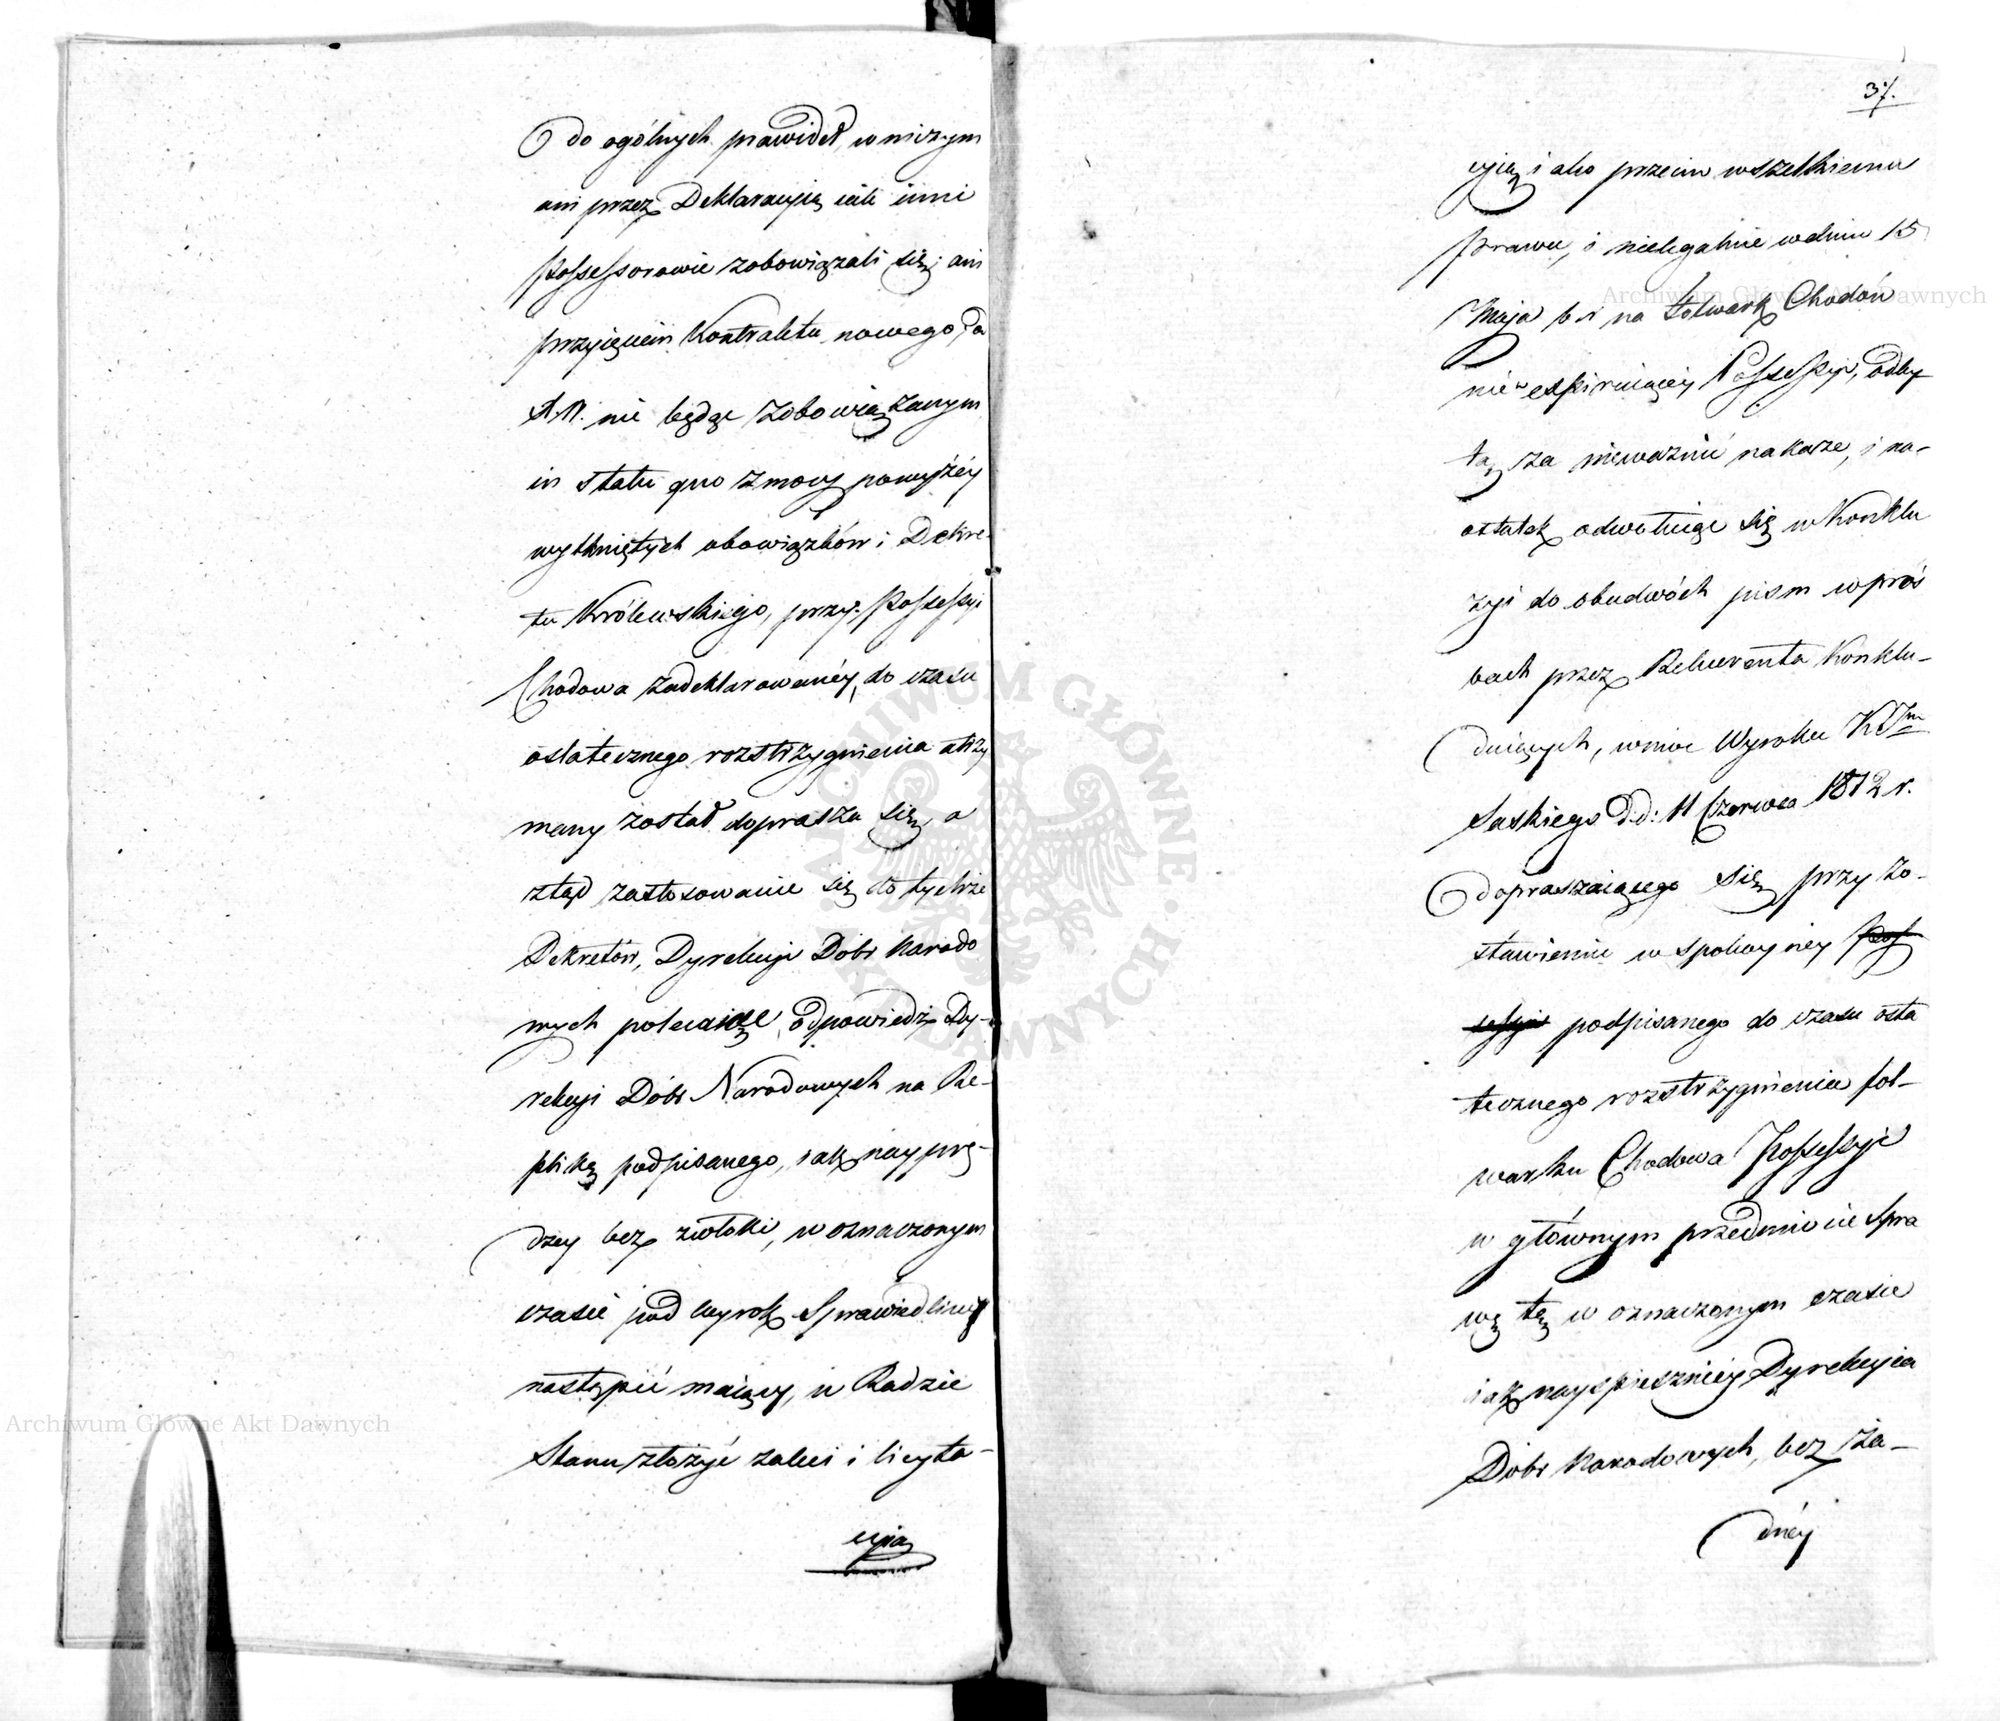 do ogólnych prawideł, w niczym
ani przez Deklaracyią iak inni
Possessorowie zobowiązali się; ani
przyięciem Kontraktu nowego, do
nie będąc zobowiązanym
in statu quo z mocy powyżéy
wytkniętych obowiązków i Dekre-
tu Królewskiego, przy Possessyi
Chodowa zadeklarowanéy, do czasu
ostatecznego rozstrzygnienia utrzy
many został doprasza się, a
ztąd zastosowanie się do tychże
Dekretów, Dyrekcyi Dóbr Narodo
wych polecaiąc, odpowiedź Dy-
rekcyi Dóbr Narodowych na Re-
plikę podpisanego, iak nayprę-
dzey bez zwłoki, w oznaczonym
czasie pod wyrok sprawiedliwy
nastąpić maiący, w Radzie
Stanu złożyć zaleci i licyta-
cyią
37.
cyią iako przeciw wszelkiemu
prawu, i nielegalnie w dniu 15
Maja b r na Folwark Chodów
nie expiruiącey Possessyi, odby
tą za nieważną nakaże, i na-
ostatek odwołuiąc się w Konklu
zyi do obudwóch pism w proś
bach przez Rekurenta Konklu-
duiących, wmoc Wyroku K Jmci
Saskiego d.d: 11 Czerwca 1812 r.
dopraszaiącego się przy zo-
stawieniu w spokoyney Pos
sessyi podpisanego do czasu osta
tecznego rozstrzygnienia fol-
warku Chodowa Possessyi
w głównym przedmiocie Spra
wę tę w oznaczonym czasie
iak nayspieszniey Dyrekcyia
Dóbr Narodowych, bez ża-
dnéy
Archiwum Główne Akt Dawnych
Archiwum Główne Akt Dawnych
ARCHIWUM GŁÓWNE AKT DAWNYCH